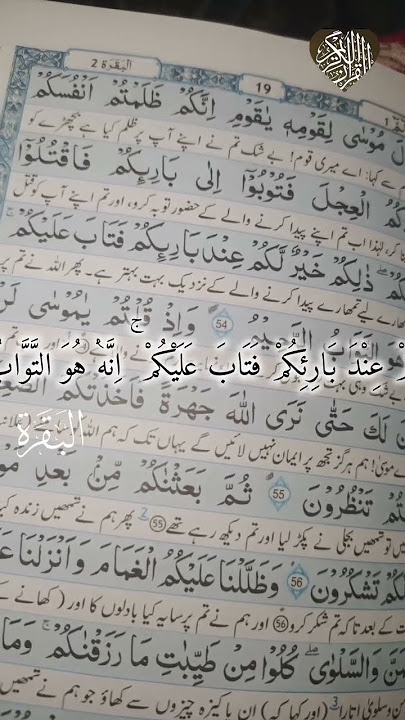 البقرة 2
19
مُوْسٰى لِقَوْمِهٖ يٰقَوْمِ اِنَّكُمْ ظَلَمْتُمْ اَنْفُسَكُمْ
سے کہا: اے میری قوم! بے شک تم نے اپنے آپ پر ظلم کیا ہے بچھڑے کو
الْعِجْلَ فَتُوْبُوْٓا اِلٰى بَارِئِكُمْ فَاقْتُلُوْٓا
کر، لہٰذا اب تم اپنے پیدا کرنے والے کے حضور توبہ کرو، اور تم اپنے آپ کو قتل
ذٰلِكُمْ خَيْرٌ لَّكُمْ عِنْدَ بَارِئِكُمْ فَتَابَ عَلَيْكُمْ
تمھارے لیے تمھارے پیدا کرنے والے کے نزدیک یہی بہتر ہے۔ پھر اللہ نے تم پر
54 وَاِذْ قُلْتُمْ يٰمُوْسٰى لَنْ
عِندَ بَارِئِكُمْ فَتَابَ عَلَيْكُمْ ۚ إِنَّهُ هُوَ التَّوَّابُ
لَكَ حَتّٰى نَرَى اللّٰهَ جَهْرَةً فَاَخَذَتْكُمُ
البقرة
موسیٰ! ہم ہرگز تجھ پر ایمان نہیں لائیں گے یہاں تک کہ ہم اللہ
تَنْظُرُوْنَ 55 ثُمَّ بَعَثْنٰكُمْ مِّنْۢ بَعْدِ
تو تمھیں بجلی نے پکڑ لیا اور تم دیکھ رہے تھے 55 پھر ہم نے تمھیں زندہ کیا
تَشْكُرُوْنَ 56 وَظَلَّلْنَا عَلَيْكُمُ الْغَمَامَ وَاَنْزَلْنَا
کے بعد تاکہ تم شکر کرو 56 اور ہم نے تم پر سایہ کیا بادلوں کا اور (کھانے کے
وَالسَّلْوٰى ۭ كُلُوْا مِنْ طَيِّبٰتِ مَا رَزَقْنٰكُمْ ۭ وَمَا
و سلویٰ اتارا 3 (اور کہا کہ) ان پاکیزہ چیزوں سے کھاؤ جو ہم نے تمھیں